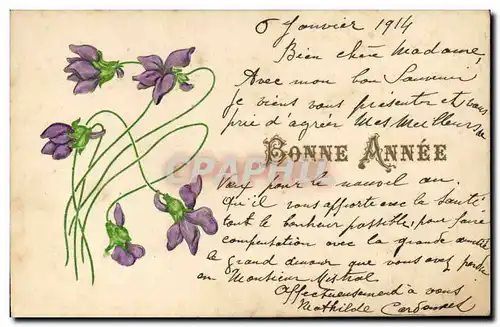 6 Janvier 1914
Bien chère Madame,
Avec mon bon Souvenir
je viens vous présenter et vous
prie d'agréer Mes Meilleurs
BONNE ANNÉE
CPHARTI
Vœux pour le nouvel an
qu'il vous apporte avec la Santé
tout le bonheur possible, pour faire
compensation avec la grande
la grand que vous avez
en Monsieur Mistral.
Affectueusement à vous
Mathilde